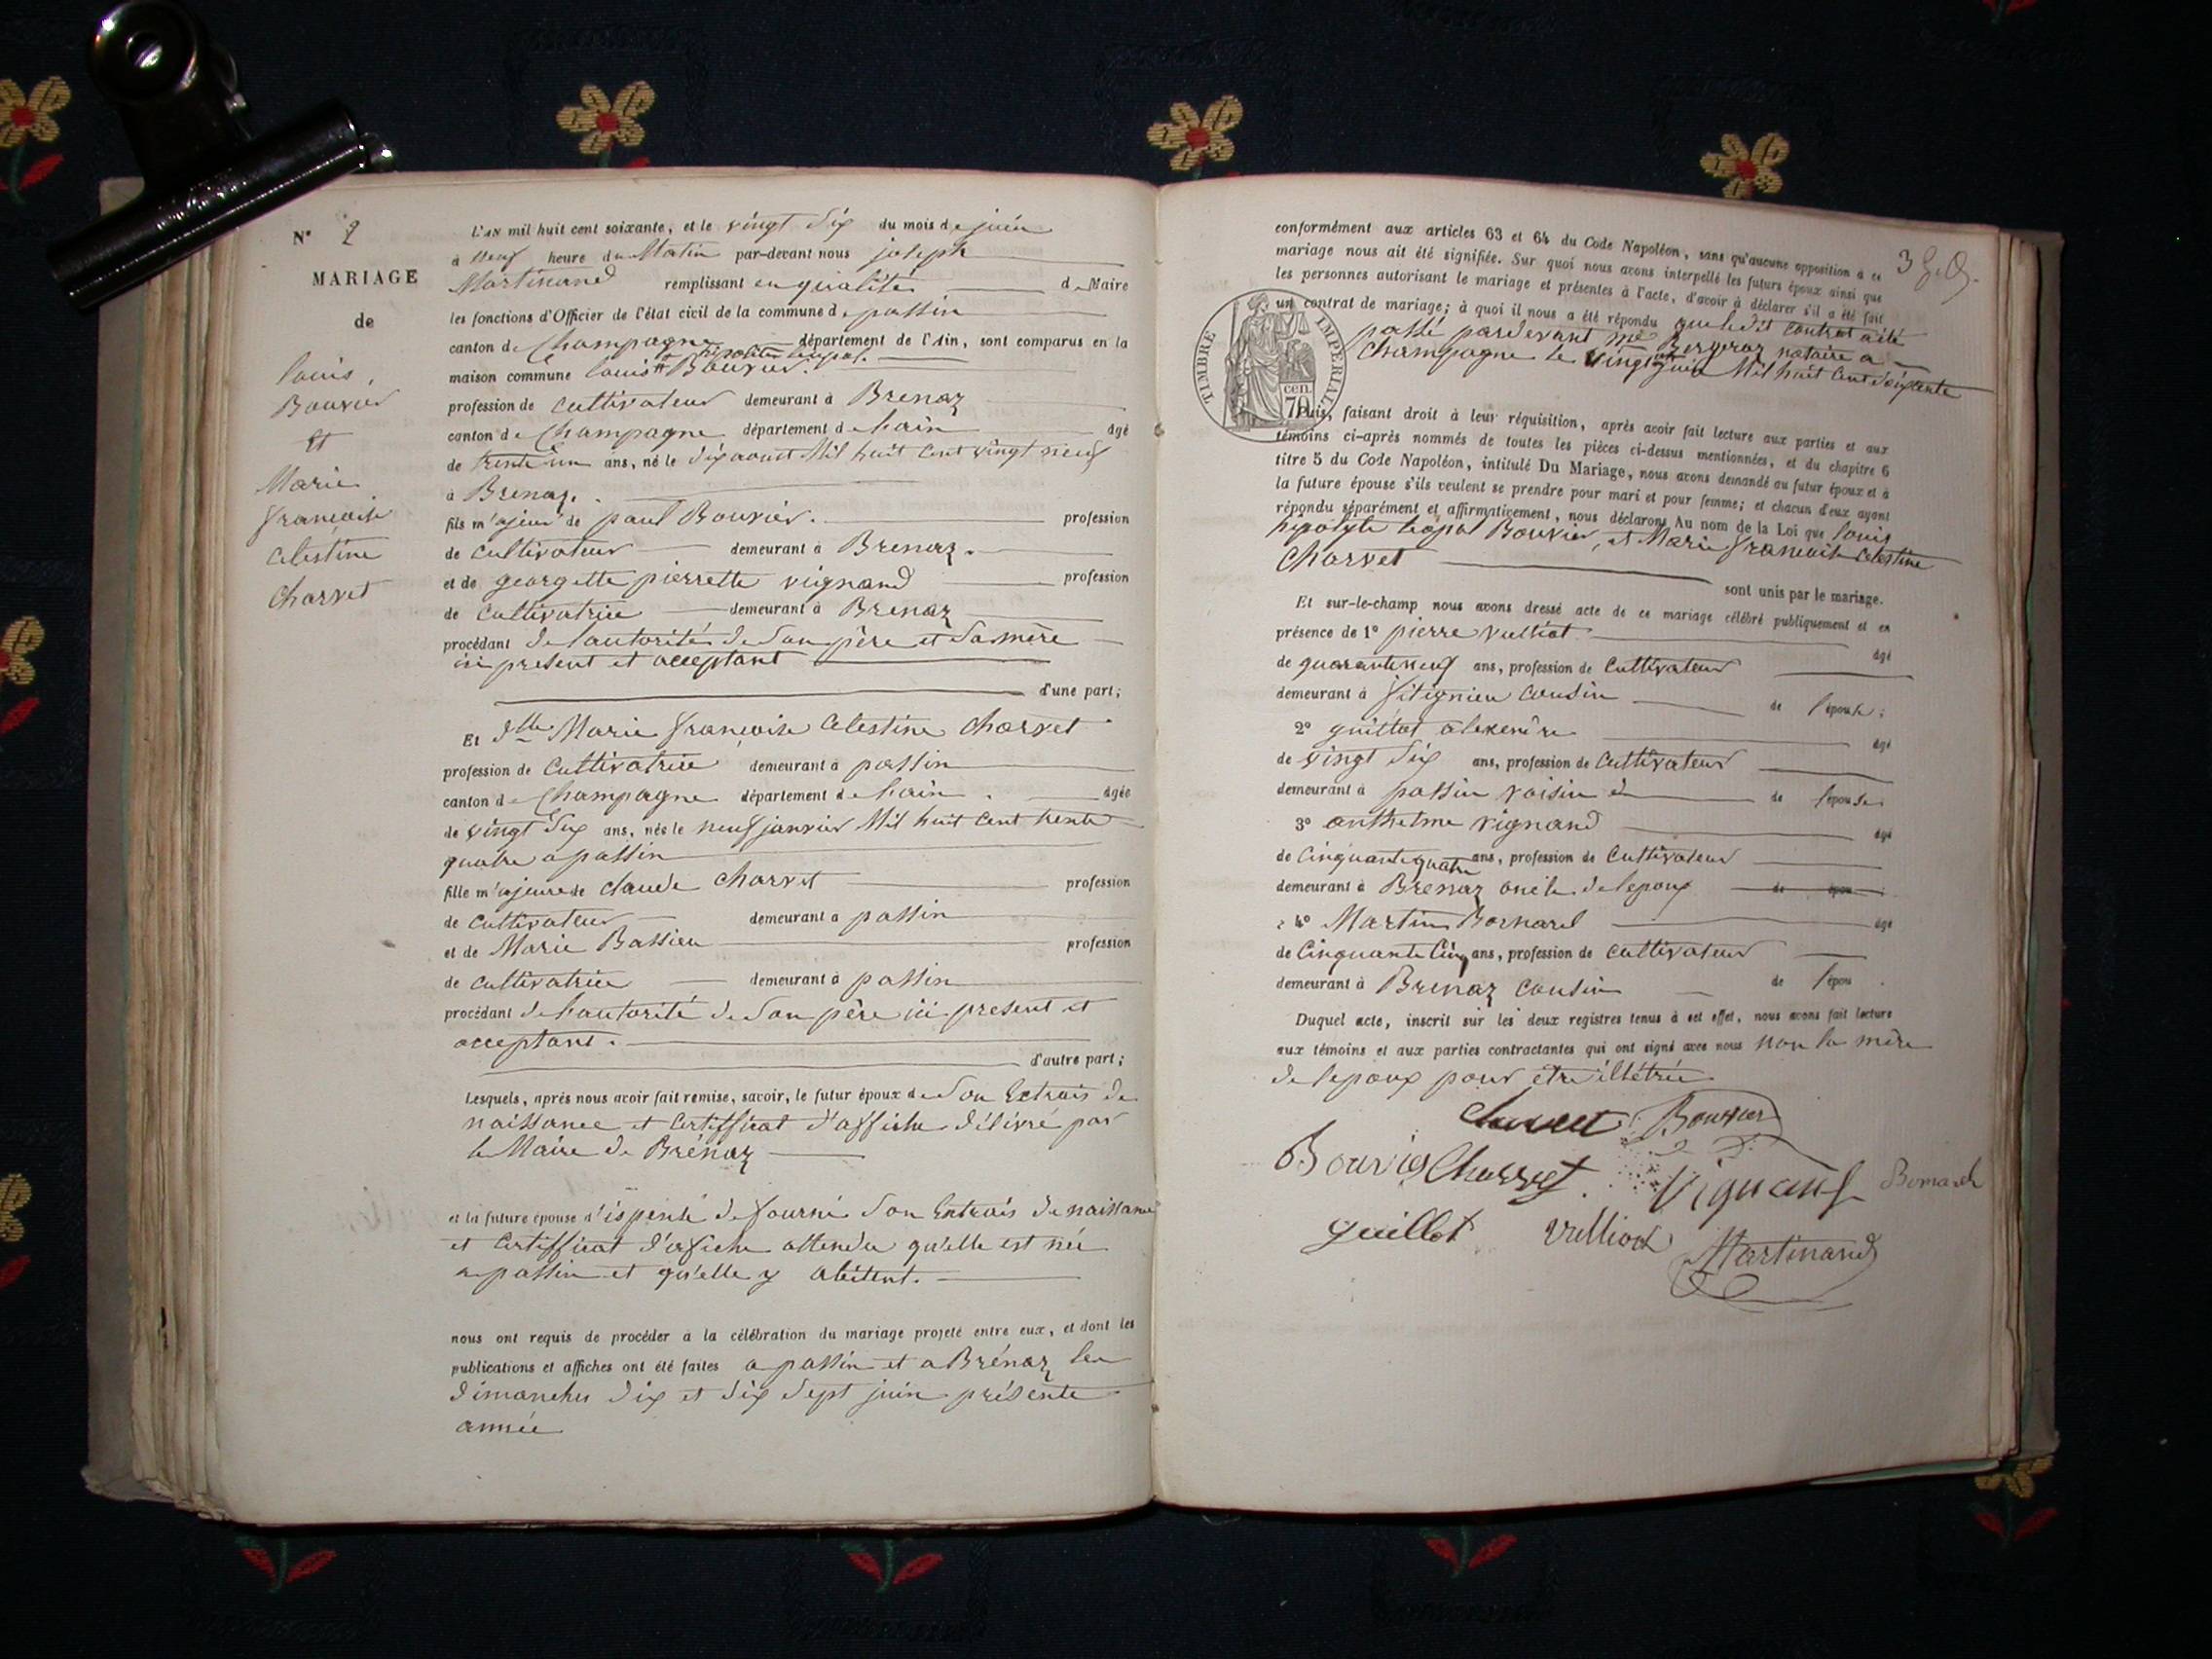 N° 2
MARIAGE
de
louis,
Bouvier
Et
Marie
françoise
celestine
Charvet
L'AN mil huit cent soixante, et le vingt six du mois de juin
à neuf heure du Matin par-devant nous joseph
Martinand remplissant en qualité de Maire
les fonctions d'Officier de l'état civil de la commune de passin
canton de Champagne département de l'Ain, sont comparus en la
maison commune louis Bouvier.
profession de cultivateur demeurant à Brenaz
canton de Champagne département de lain âgé
de trente un ans, né le dix aout Mil huit Cent vingt neuf
à Brenaz.
fils majeur de paul Bouvier. profession
de cultivateur demeurant à Brenaz.
et de georgette pierrette vignand profession
de cultivatrice demeurant à Brenaz
procédant de lautorité de son père et sa mère
ici present et acceptant
d'une part;
Et dlle Marie françoise Celestine Charvet
profession de Cultivatrice demeurant à passin
canton de Champagne département de lain. âgée
de vingt six ans, née le neuf janvier Mil huit Cent trente
quatre a passin
fille majeure de claude Charvet profession
de cultivateur demeurant à passin
et de Marie Bassieu profession
de cultivatrice demeurant à passin
procédant de lautorité de son père ici present et
acceptant.
d'autre part;
Lesquels, après nous avoir fait remise, savoir, le futur époux de son Extrais de
naissance et Certifficat d'affiche délivré par
le Maire de Brénaz
et la future épouse dispensé de fourni son Extrais de naissance
et Certifficat d'afiche attendu qu'elle est née
a passin et qu'elle y abitent.
nous ont requis de procéder à la célébration du mariage projeté entre eux, et dont les
publications et affiches ont été faites a passin et a Brénaz les
dimanches dix et dix sept juin présente
année
conformément aux articles 63 et 64 du Code Napoléon, sans qu'aucune opposition à ce
mariage nous ait été signifiée. Sur quoi nous avons interpellé les futurs époux ainsi que
les personnes autorisant le mariage et présentes à l'acte, d'avoir à déclarer s'il a été fait
un contrat de mariage; à quoi il nous a été répondu que ledit contrat a été
passé pardevant me Bergeraz notaire a
Champagne le vingt juin Mil huit Cent soixante
TIMBRE IMPERIAL
70 cen.
Puis, faisant droit à leur réquisition, après avoir fait lecture aux parties et aux
témoins ci-après nommés de toutes les pièces ci-dessus mentionnées, et du chapitre 6
titre 5 du Code Napoléon, intitulé Du Mariage, nous avons demandé au futur époux et à
la future épouse s'ils veulent se prendre pour mari et pour femme; et chacun d'eux ayant
répondu séparément et affirmativement, nous déclarons Au nom de la Loi que louis
hypolyte leopol Bouvier, et Marie françoise Celestine
Charvet
sont unis par le mariage.
Et sur-le-champ nous avons dressé acte de ce mariage célébré publiquement et en
présence de 1° pierre vulliot âgé
de quarante neuf ans, profession de Cultivateur
demeurant à fitignieu cousin de l'épouse;
2° guillot alexendre âgé
de vingt six ans, profession de Cultivateur
demeurant à passin voisin de l'épouse
3° anthelme vignand âgé
de Cinquante quatre ans, profession de Cultivateur
demeurant à Brenaz oncle de lepoux de épou
4° Martin Bornarel âgé
de Cinquante Cinq ans, profession de cultivateur
demeurant à Brenaz cousin de l'épou
Duquel acte, inscrit sur les deux registres tenus à cet effet, nous avons fait lecture
aux témoins et aux parties contractantes qui ont signé avec nous Non la mère
de lepoux pour être illétrée
Charvet Bouvier
Bouvier Charvet Vignand
guillot vulliod Martinand